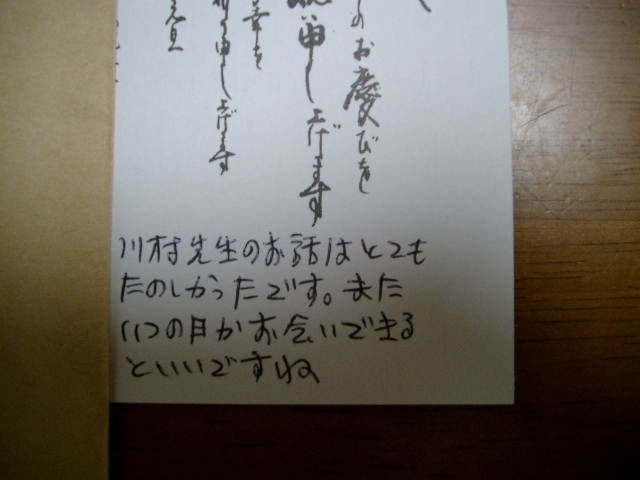 のお慶びを
申し上げます
幸を
申し上げます
元旦
川村先生のお話はとても
たのしかったです。また
いつの日かお会いできる
といいですね